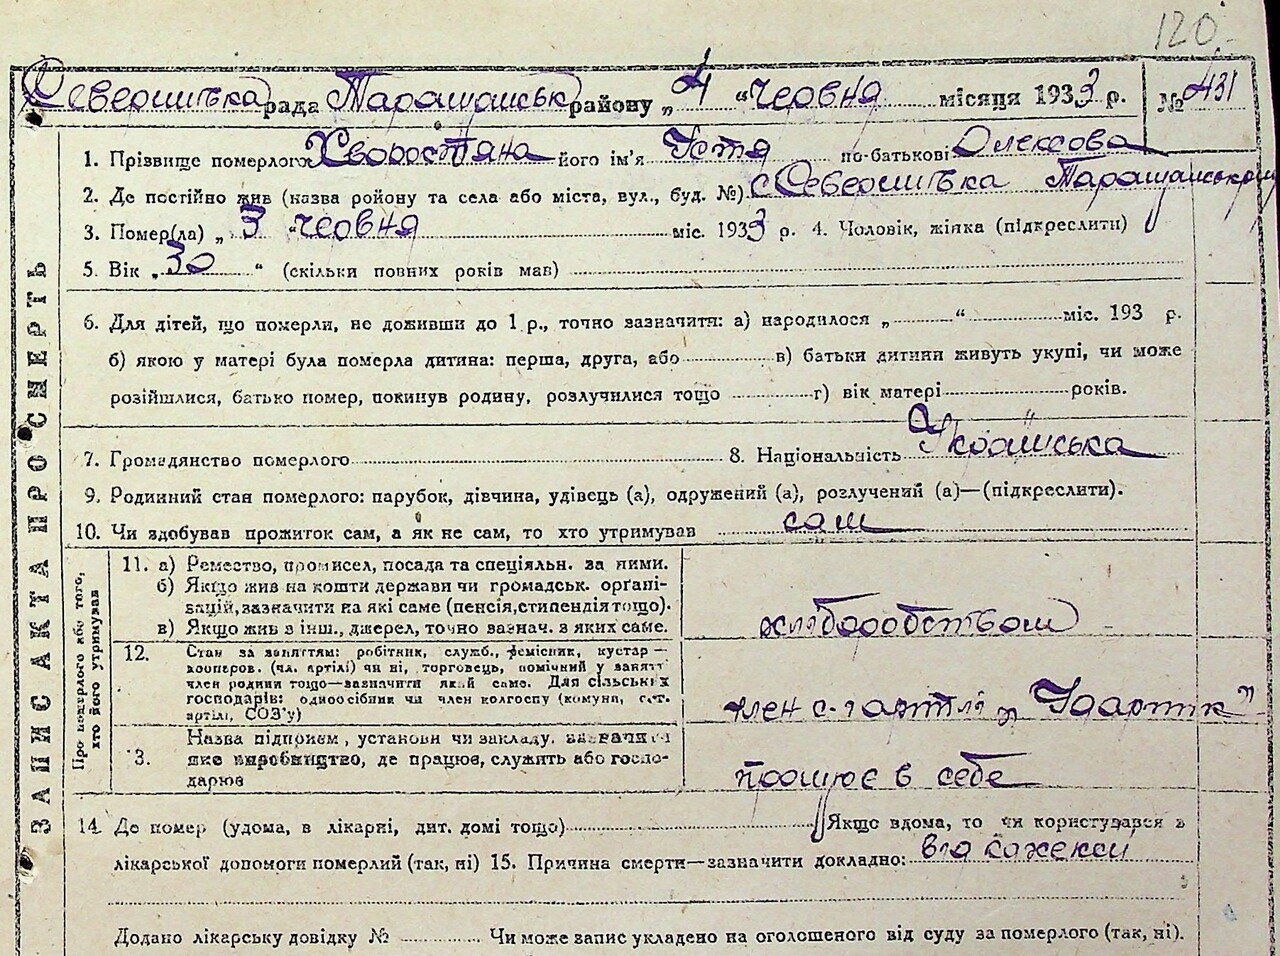 120.
Северинівка рада Таращанськ району „4 “ червня місяця 1933 р. № 431
1. Прізвище померлого Хворостяна його ім'я Устя по-батькові Олексова
2. Де постійно жив (назва ройону та села або міста, вул., буд. №) с Северинівка Таращанський
3. Помер(ла) „ 3 “ червня міс. 1933 р. 4. Чоловік, жінка (підкреслити)
5. Вік „ 30 “ (скільки повних років мав)
6. Для дітей, що померли, не доживши до 1 р., точно зазначити: а) народилося „ “ міс. 193 р.
б) якою у матері була померла дитина: перша, друга, або в) батьки дитини живуть укупі, чи може
розійшлися, батько помер, покинув родину, розлучилися тощо г) вік матері років.
7. Громадянство померлого 8. Національність Українська
9. Родинний стан померлого: парубок, дівчина, удівець (а), одружений (а), розлучений (а)—(підкреслити).
10. Чи здобував прожиток сам, а як не сам, то хто утримував сам
ЗАПИС АКТА ПРО СМЕРТЬ
Про померлого або того, хто його утримував
11. а) Ремество, промисел, посада та спеціяльн. за ними.
б) Якщо жив на кошти держави чи громадськ. орґані-
зацій, зазначити на які саме (пенсія, стипендія тощо).
в) Якщо жив з інш., джерел, точно зазнач. з яких саме.
хліборобством
12. Стан за заняттям: робітник, служб., ремісник, кустар—
кооперов. (чл. артілі) чи ні, торговець, помічний у занятт
член родини тощо—зазначити який саме. Для сільських
господарів: одноосібник чи член колгоспу (комуна, с.-г.
артілі, СОЗ'у)
член с-г артілі „ "
3. Назва підприєм, установи чи закладу, зазначити
яке виробництво, де працює, служить або госпо-
дарює
працює в себе
14. Де помер (удома, в лікарні, дит. домі тощо) Якщо вдома, то чи користувався з
лікарської допомоги померлий (так, ні) 15. Причина смерти—зазначити докладно: від кахексії
Додано лікарську довідку № Чи може запис укладено на оголошеного від суду за померлого (так, ні).